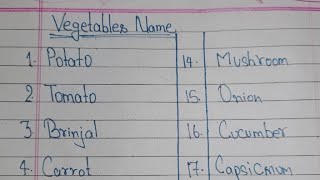 Vegetables Name
1. Potato
2. Tomato
3. Brinjal
4. Carrot
14. Mushroom
15. Onion
16. Cucumber
17. Capsicmum